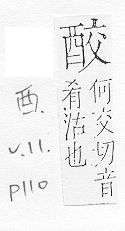 酸
何交切音
肴沽也
酉.
v.11.
p110